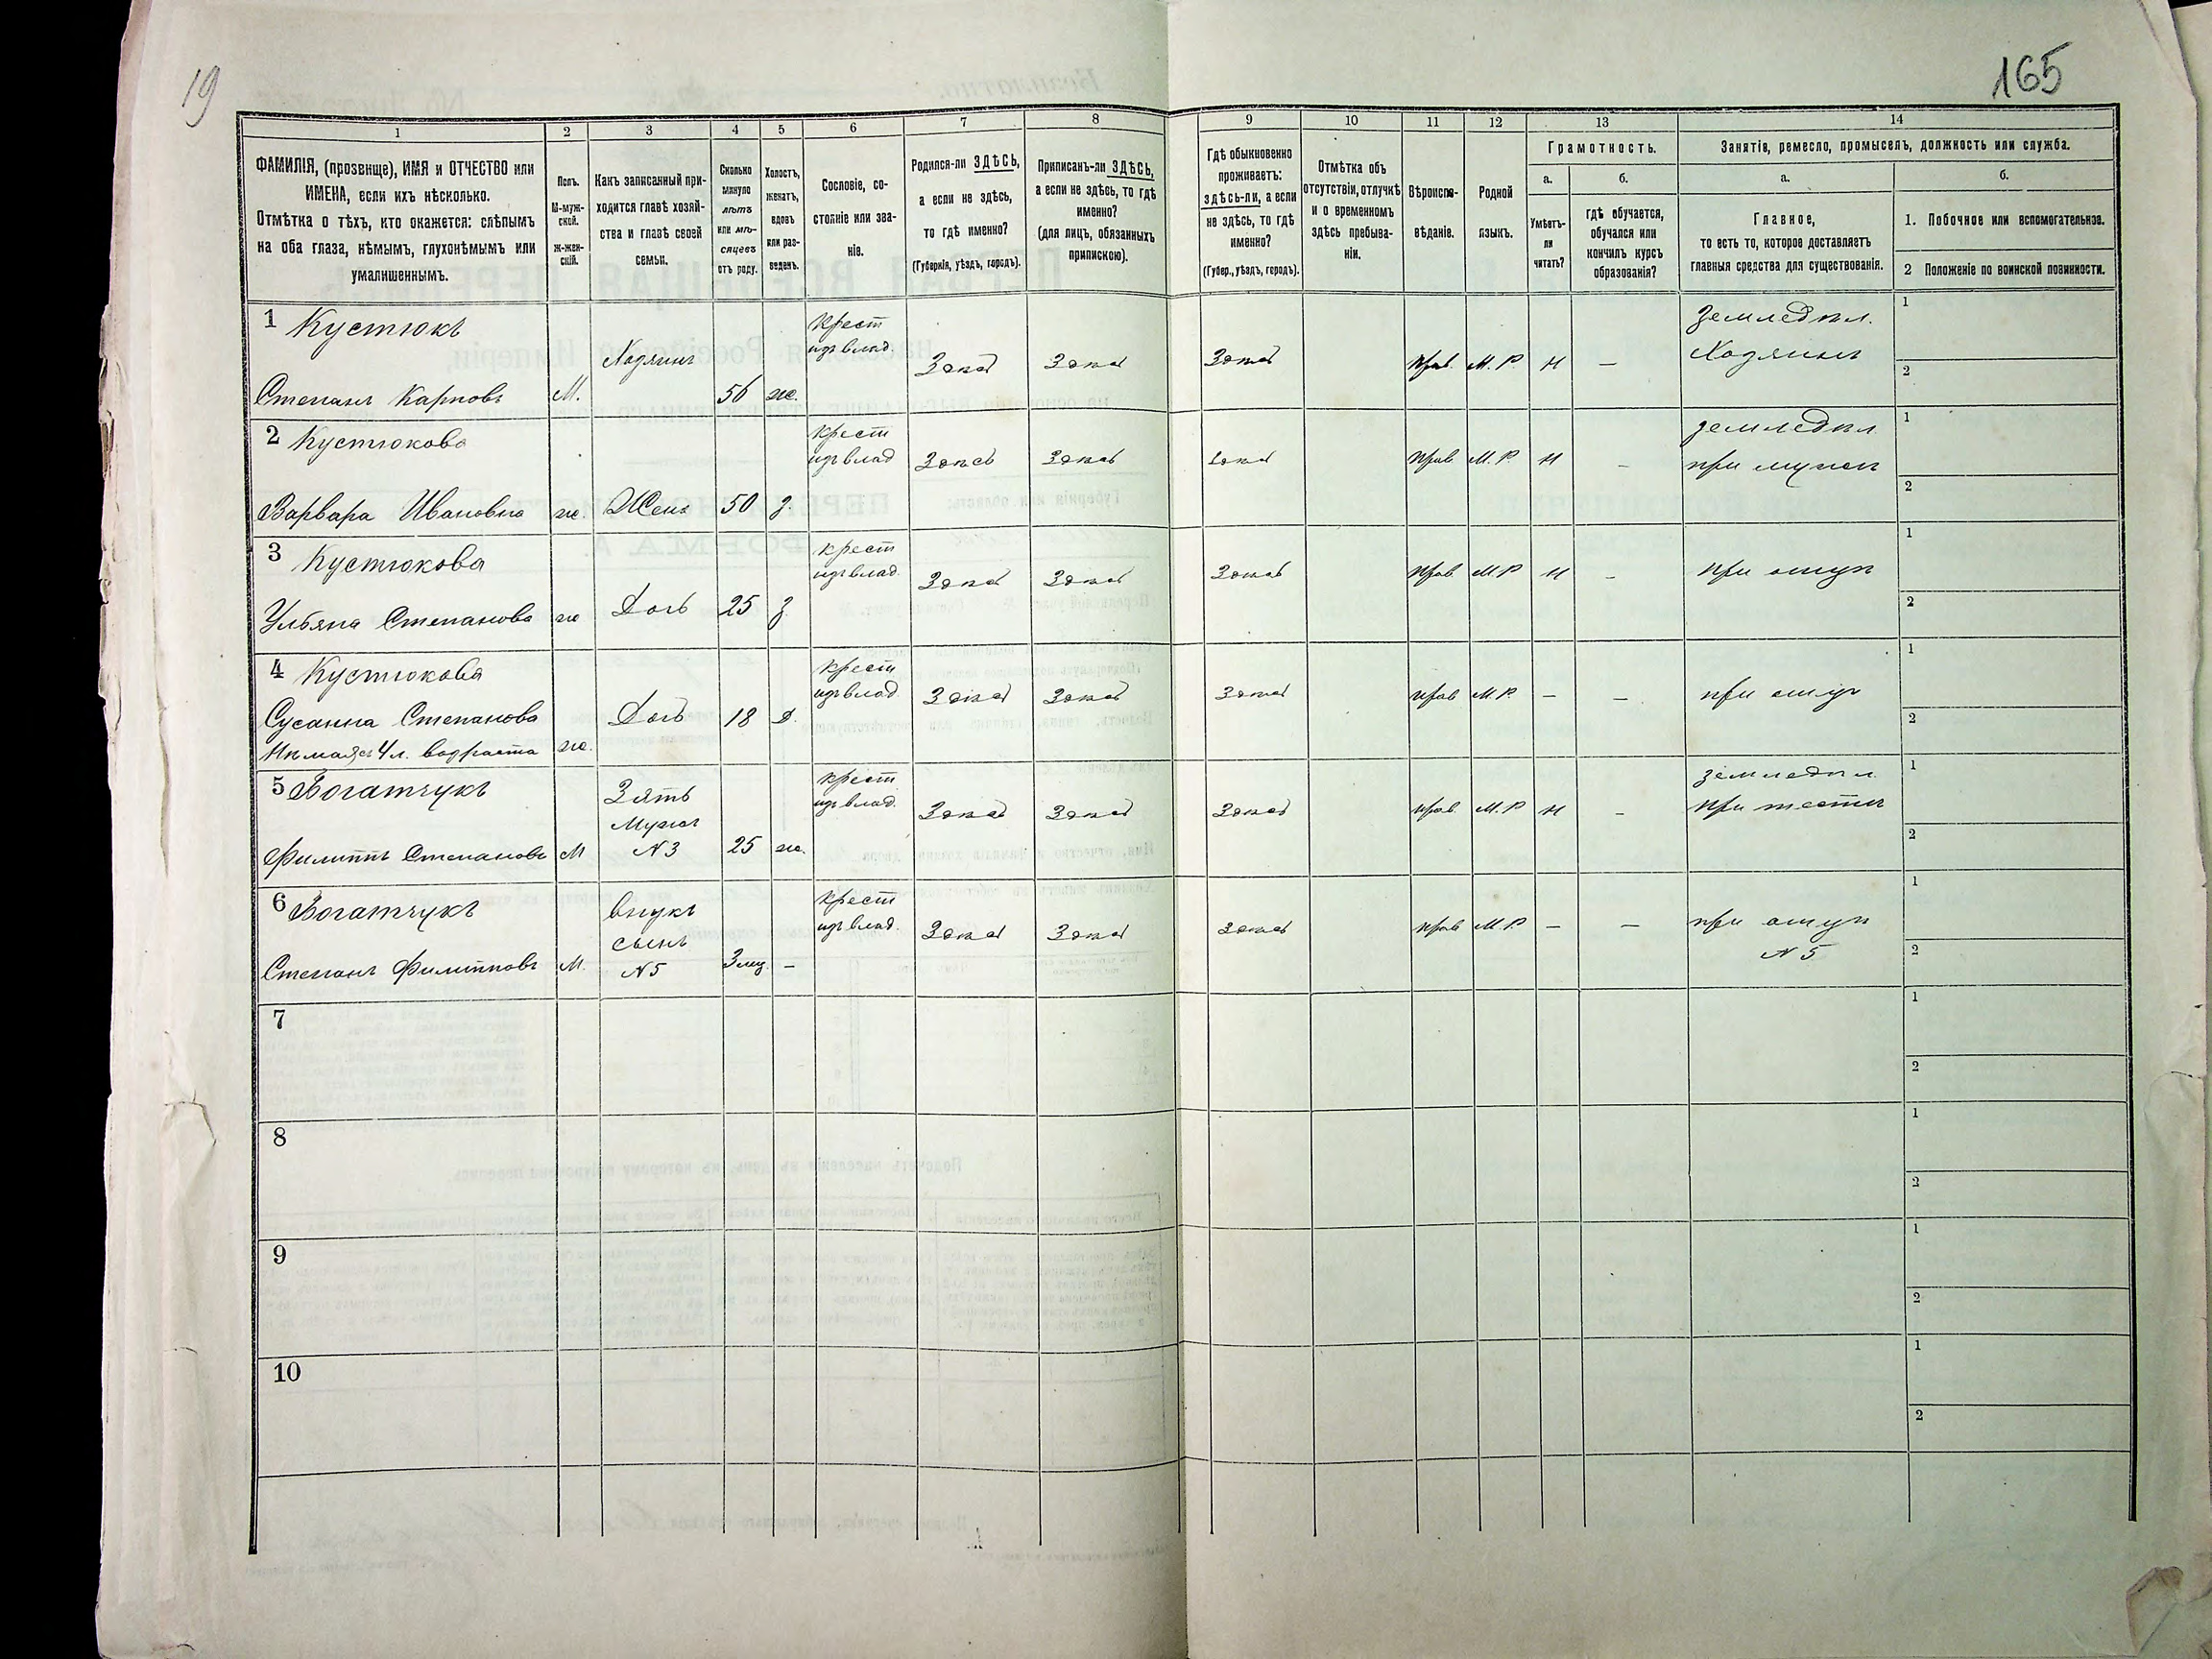 19
165
1
2
3
4
5
6
7
8
9
10
11
12
13
14
ФАМИЛІЯ, (прозвище), ИМЯ и ОТЧЕСТВО или
ИМЕНА, если ихъ нѣсколько.
Отмѣтка о тѣхъ, кто окажется: слѣпымъ
на оба глаза, нѣмымъ, глухонѣмымъ или
умалишеннымъ.
Полъ.
М-муж-
ской.
Ж-жен-
скій.
Какъ записанный при-
ходится главѣ хозяй-
ства и главѣ своей
семьи.
Сколько
минуло
лѣтъ
или мѣ-
сяцевъ
отъ роду.
Холостъ,
женатъ,
вдовъ
или раз-
веденъ.
Сословіе, со-
стояніе или зва-
ніе.
Родился-ли ЗДѢСЬ,
а если не здѣсь,
то гдѣ именно?
(Губернія, уѣздъ, городъ).
Приписанъ-ли ЗДѢСЬ,
а если не здѣсь, то гдѣ
именно?
(для лицъ, обязанныхъ
припискою).
Гдѣ обыкновенно
проживаетъ:
здѣсь-ли, а если
не здѣсь, то гдѣ
именно?
(Губер., уѣздъ, городъ).
Отмѣтка объ
отсутствіи, отлучкѣ
и о временномъ
здѣсь пребыва-
ніи.
Вѣроиспо-
вѣданіе.
Родной
языкъ.
Грамотность.
а.
б.
Умѣетъ-
ли
читать?
гдѣ обучается,
обучался или
кончилъ курсъ
образованія?
Занятіе, ремесло, промыселъ, должность или служба.
а.
б.
Главное,
то есть то, которое доставляетъ
главныя средства для существованія.
1. Побочное или вспомогательное.
2 Положеніе по воинской повинности.
1 Кустюкъ
Степанъ Карповъ
М.
Хозяинъ
56
же.
крест
изъ влад.
Здѣсь
Здѣсь
Здѣсь
Прав.
М. Р.
Н
—
земледѣл.
Хозяинъ
1
2
2 Кустюкова
Варвара Ивановна
же.
Жена
50
з.
крест
изъ влад
Здѣсь
Здѣсь
Здѣсь
Прав.
М. Р.
Н
–
земледѣл
при мужѣ
1
2
3 Кустюкова
Ульяна Степанова
же
Дочь
25
з
крест
изъ влад.
Здѣсь
Здѣсь
Здѣсь
Прав.
М. Р
Н
–
при отцѣ
1
2
4 Кустюкова
Сусанна Степанова
Нѣмая съ 4 л. возраста
же.
Дочь
18
д.
крест
изъ влад.
Здѣсь
Здѣсь
Здѣсь
прав
М. Р.
–
–
при отцѣ
1
2
5 Богатчукъ
Филиппъ Степановъ
М
Зять
Мужъ
N 3
25
же.
крест
изъ влад.
Здѣсь
Здѣсь
Здѣсь
прав.
М. Р
Н
–
земледѣл
при тестѣ
1
2
6 Богатчукъ
Степанъ Филипповъ
М.
внукъ
сынъ
N 5
3 мц
–
крест
изъ влад.
Здѣсь
Здѣсь
Здѣсь
прав
М. Р
–
–
при отцѣ
N 5
1
2
7
1
2
8
1
2
9
1
2
10
1
2